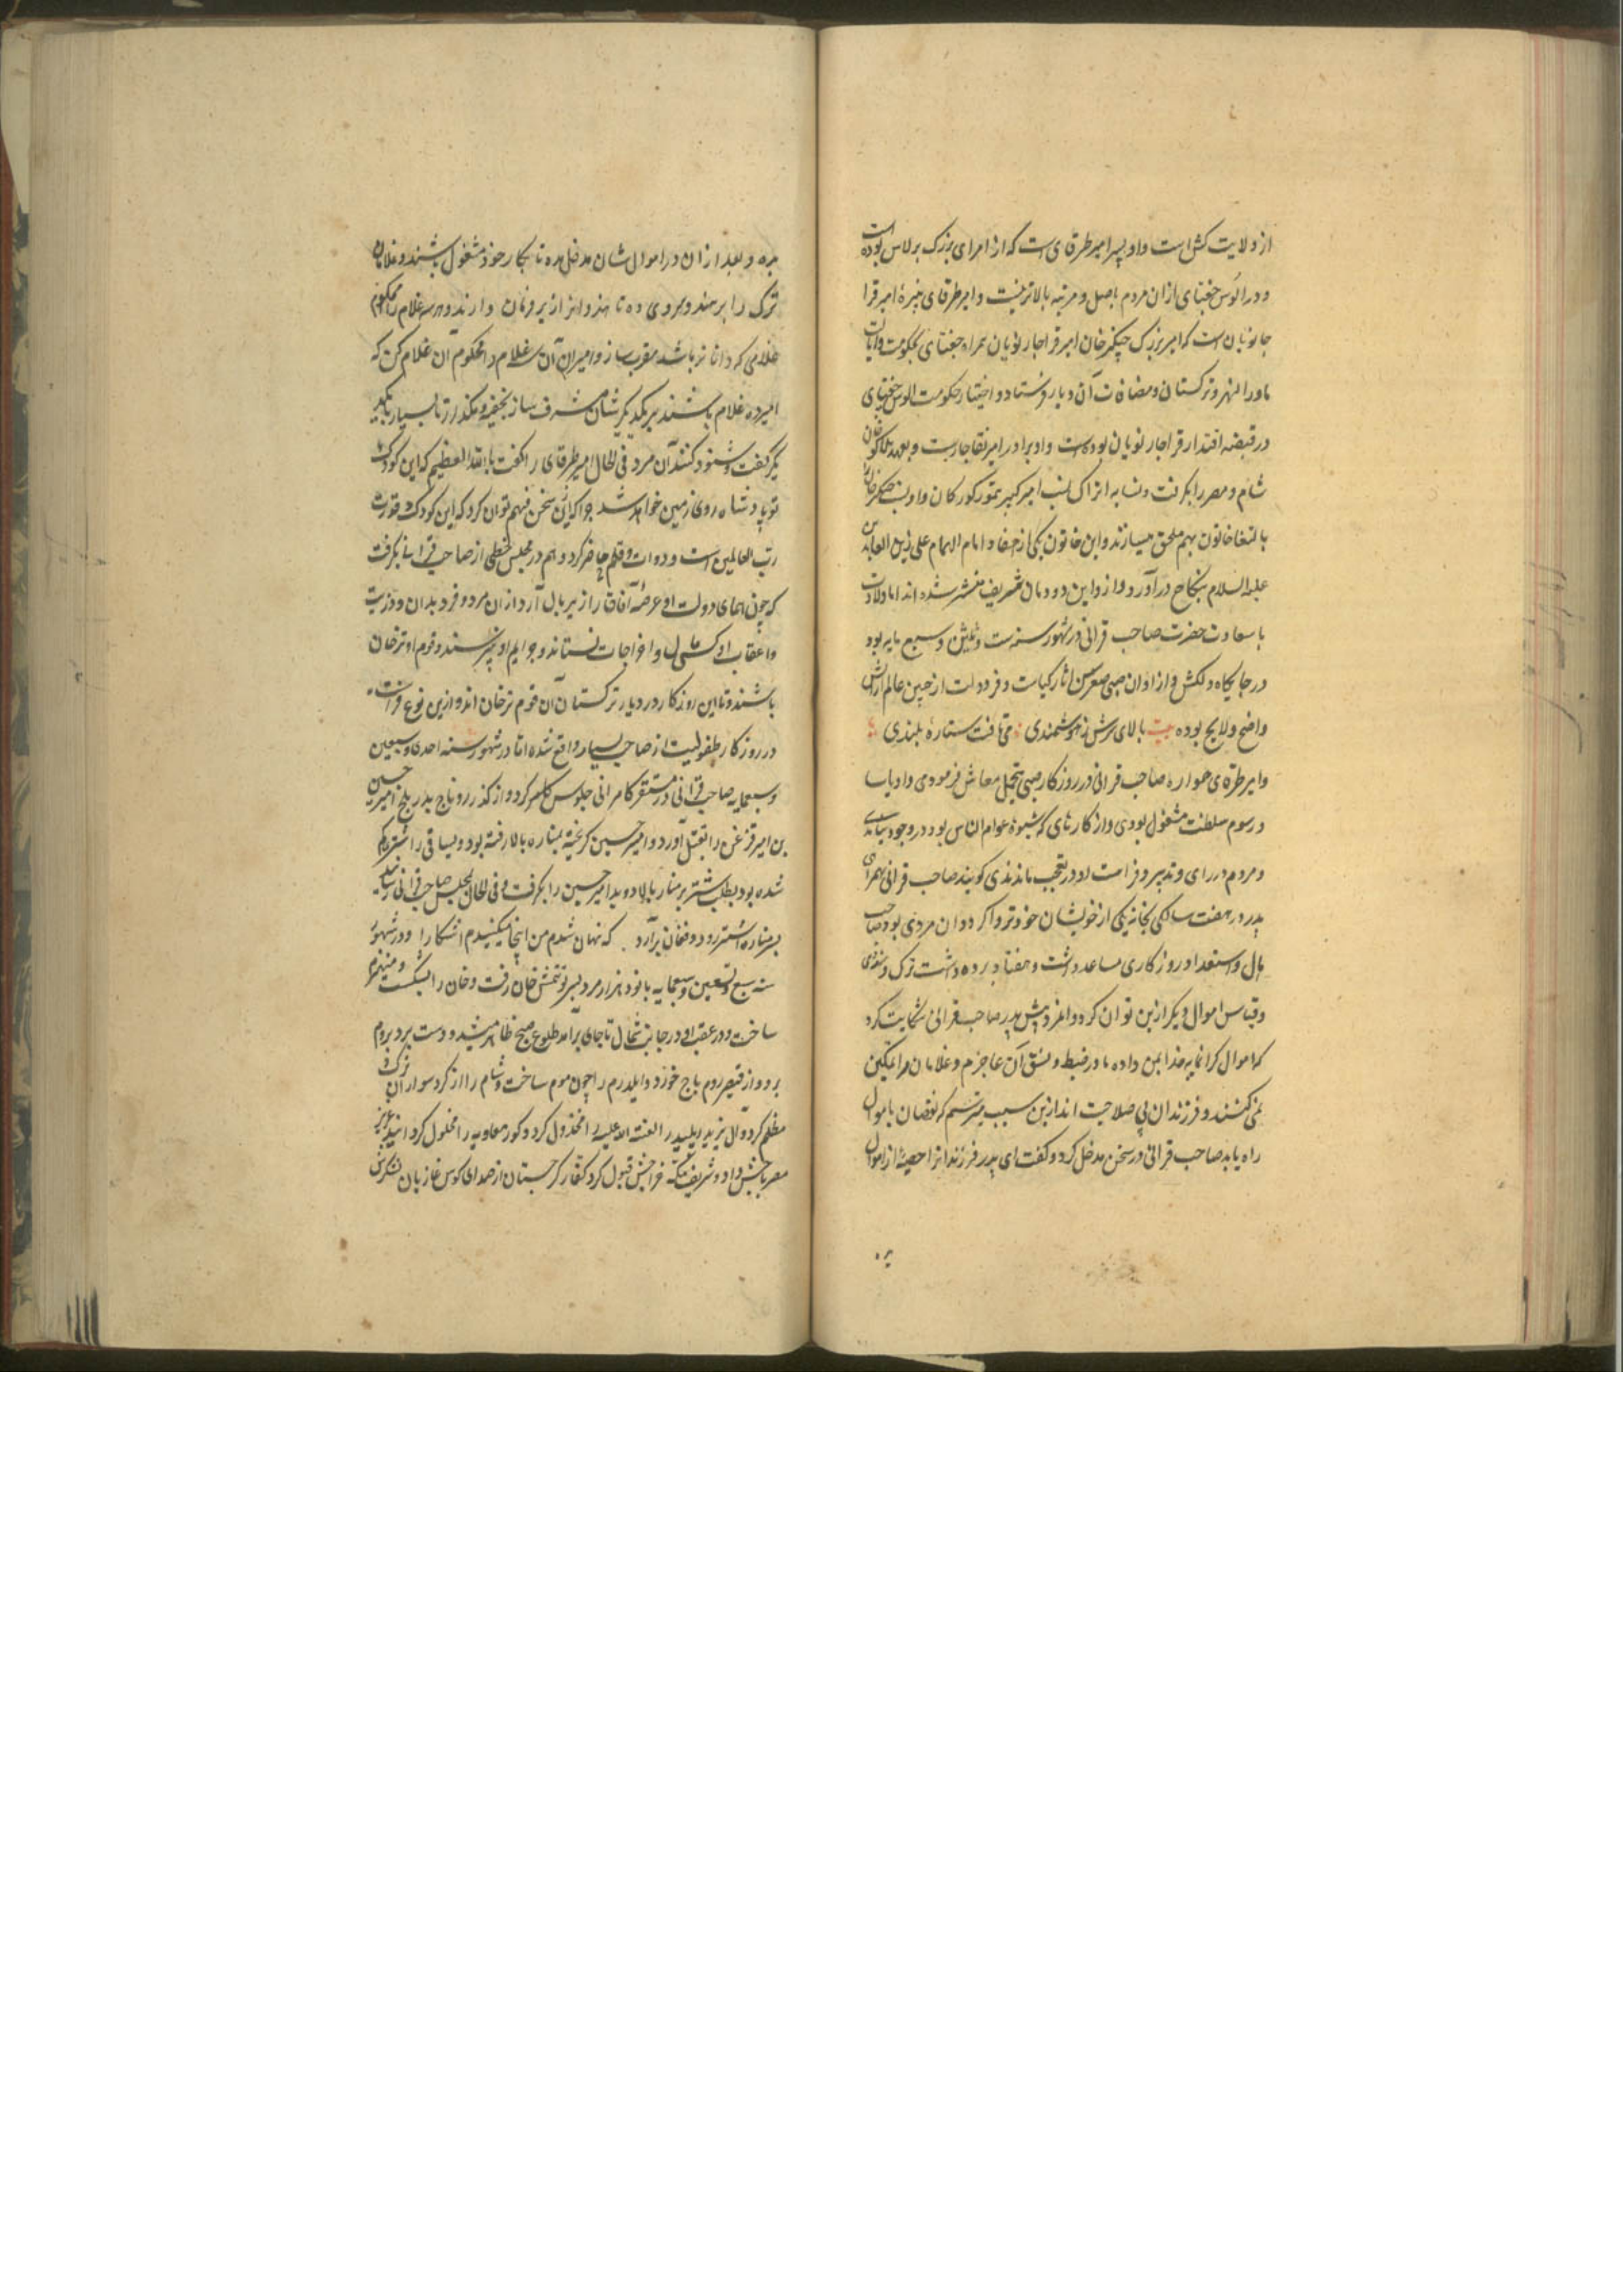 از ولایت کش است و او پسر امیر طرقای است که از امرای بزرگ برلاس بوده است
و در الوس جغتای ازان مردم باصل و مرتبه بالاتر نیست و امیر طرقای نبیره امیر قرا
جار نویان است که امیر بزرگ چنگیز خان امیر قراجار نویان همراه جغتای بحکومت و ایالت
ماورا النهر و ترکستان و مضافات آن دیار فرستاد و اختیار حکومت الوس جغتای
در قبضه اقتدار قراجار نویان بوده است و او برادر امیر نقاجار است و بعهد هلاکو خان
شام و مصر را بگرفت و نسابه اتراک نسب امیر کبیر تیمور کورکان و او نسب چنگیز خان
بالنغا خاتون بهم ملحق میسازند و این خاتون یکی از احفاد امام الهمام علی زین العابدین
علیه السلام بنکاح درآورد و ازو این دودمان شریف منتشر شده اند اما ولادت
با سعادت حضرت صاحب قرانی در شهور سنه ست و ثلثین و سبع مایه بود
در جایگاه دلکش و از اوان صبی و صغر سن اثار کیاست و فر دولت از جبین عالم آرایش
واضح و لایح بوده بیت بالای سرش ز هوشمندی می تافت ستاره بلندی
و امیر طرقای همواره صاحب قرانی در روزگار صبی بتجمل معاش فرمودی و او باب
و رسوم سلطنت مشغول بودی و از کارهای که شیوه عوام الناس بود در وجود نیامدی
و مردم در رای و تدبیر و فراست او در تعجب ماندندی گویند صاحب قرانی همرای
پدر در هفت سالگی بخانه یکی از خویشان خود نزول کرد و آن مردی بود صاحب
مال و استعداد روزگاری مساعد داشت و هفتاد برده داشت ترک و هندی
و قیاس اموال دیگر ازین توان کرد و آنمرد پیش پدر صاحب قرانی شکایت کرد
که اموال گرانمایه خدا بمن داده ما در ضبط و نسق آن عاجزم و غلامان مرا تمکین
نمی کنند و فرزندان بی صلاحیت اند ازین سبب میترسم که نقصان باموال
راه یابد صاحب قرانی در سخن مدخل کرد و گفت ای پدر فرزندانرا حصه از اموال
بده و بعد ازان در اموال شان مدخل مده تا بکار خود مشغول باشند و غلامان
ترک را بر هندو سروری ده تا هندوانرا زیر فرمان دارند و هر سه غلام را محکوم
غلامی که داناتر باشد مقرب ساز و امیران آن سه غلام را محکوم آن غلام کن که
امیر ده غلام باشند بر یکدیگر شان مشرف ساز بخفیه و مگذار تا بسیار با یکد
یگر گفت و شنود کنند آن مرد فی الحال امیر طرقای را گفت بالله العظیم که این کودک
تو پادشاه روی زمین خواهد شد چرا که ازین سخن فهم توان کرد که این کودک قدرت
رب العالمین است و دوات و قلم حاضر کرد و هم در مجلس خطی از صاحب قرانی بگرفت
که چون همای دولت او عرصه آفاق را زیر بال آرد ازان مرد و فرزندان و ذریت
و اعقاب او کسی مال و اخراجات نستاند و جرایم او نپرسند و قوم او ترخان
باشند و تا این روزگار در دیار ترکستان آن قوم ترخان اند و ازین نوع فراست
در روزگار طفولیت از صاحب بسیار واقع شده اما در شهور سنه احدی و سبعین
و سبعمایه صاحب قرانی در مستقر کامرانی جلوس کلمه کرد و از گذر رو تاج بدر بلخ امیر حسین
بن امیر قزغن را بقتل آورد و امیر حسین گریخته بمناره بالا رفته بود و بساقی را شتر گم
شده بود بطلب شتر بر منار بالا دوید امیر حسین را بگرفت و فی الحال بمجلس صاحب قرانی رسانید
بر مناره اشتر رود و فغان برآرد که نهان شدم من اینجا مکنیدم آشکارا و در شهور
سنه سبع و تسعین و سبعمایه با نود هزار مرد بسر توقتمش خان رفت و خان را بشکست و منهزم
ساخت و در عقب او در جانب شمال تا جای برآمد طلوع صبح ظاهر میشد و دست برد بروم
برد و از قیصر روم باج خورد و ایلدرم را چون موم ساخت و شام را از گرد سواران ترک
مظلم کرد و آل یزید پلید را لعنة الله علیه را مخذول کرد و کور معاویه را مخلول گردانید عزیز
مصر باجش داد و شریف مکه خراجش قبول کرد کفار گرجستان از صدای کوس غازیان لشکرش